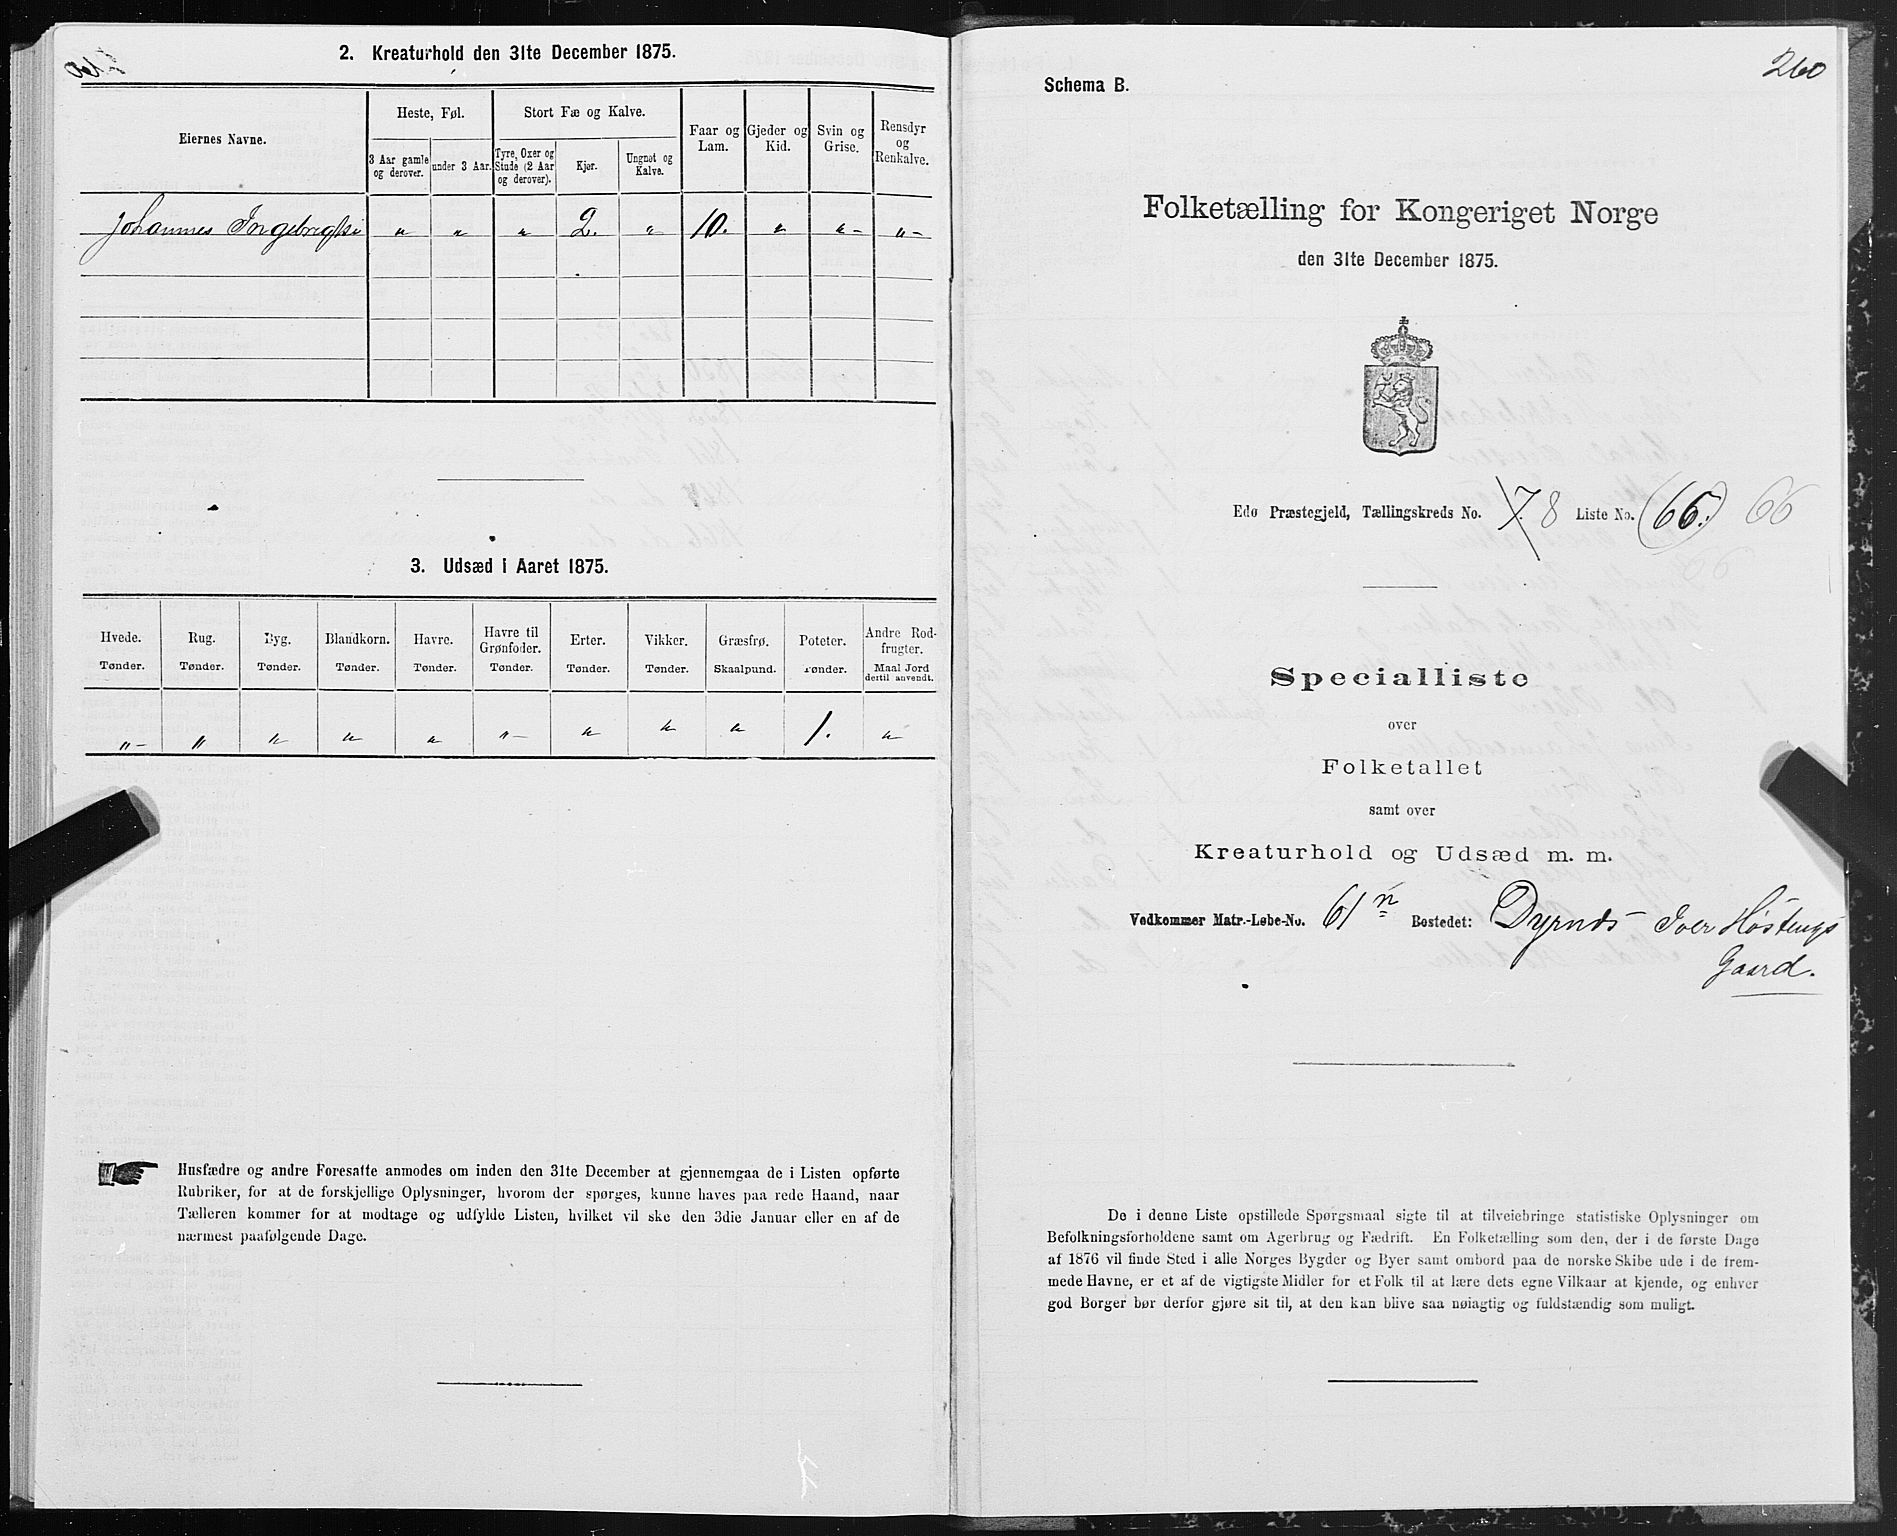 2. Kreaturhold den 31te December 1875.
Eiernes Navne.
Heste, Føl.
Stort Fæ og Kalve.
Faar og Lam.
Gjeder og Kid.
Svin og Grise.
Rensdyr og Renkalve.
3 Aar gamle og derover.
under 3 Aar.
Tyre, Oxer og Stude (2 Aar og derover).
Kjør.
Ungnøt og Kalve.
Johannes Ingebrigtsn " " " 2. " 10. " "- "-
3. Udsæd i Aaret 1875.
Hvede. Rug. Byg. Blandkorn. Havre. Havre til Grønfoder. Erter. Vikker. Græsfrø. Poteter. Andre Rodfrugter.
Tønder. Tønder. Tønder. Tønder. Tønder. Tønder. Tønder. Tønder. Skaalpund. Tønder. Maal Jord dertil anvendt.
"- " " " " "- " " " 1. "-
Husfædre og andre Foresatte anmodes om inden den 31te December at gjennemgaa de i Listen opførte
Rubriker, for at de forskjellige Oplysninger, hvorom der spørges, kunne haves paa rede Haand, naar
Tælleren kommer for at modtage og udfylde Listen, hvilket vil ske den 3die Januar eller en af de
nærmest paafølgende Dage.
260
Schema B.
Folketælling for Kongeriget Norge
den 31te December 1875.
Edø Præstegjeld, Tællingskreds No. 7. 8 Liste No. (66.) 66
66
Specialliste
over
Folketallet
samt over
Kreaturhold og Udsæd m. m.
Vedkommer Matr.-Løbe-No. 61 n Bostedet: Dyrnds Iver Høstengs
Gaard.
De i denne Liste opstillede Spørgsmaal sigte til at tilveiebringe statistiske Oplysninger om
Befolkningsforholdene samt om Agerbrug og Fædrift. En Folketælling som den, der i de første Dage
af 1876 vil finde Sted i alle Norges Bygder og Byer samt ombord paa de norske Skibe ude i de frem-
mede Havne, er et af de vigtigste Midler for et Folk til at lære dets egne Vilkaar at kjende, og enhver
god Borger bør derfor gjøre sit til, at den kan blive saa nøiagtig og fuldstændig som muligt.